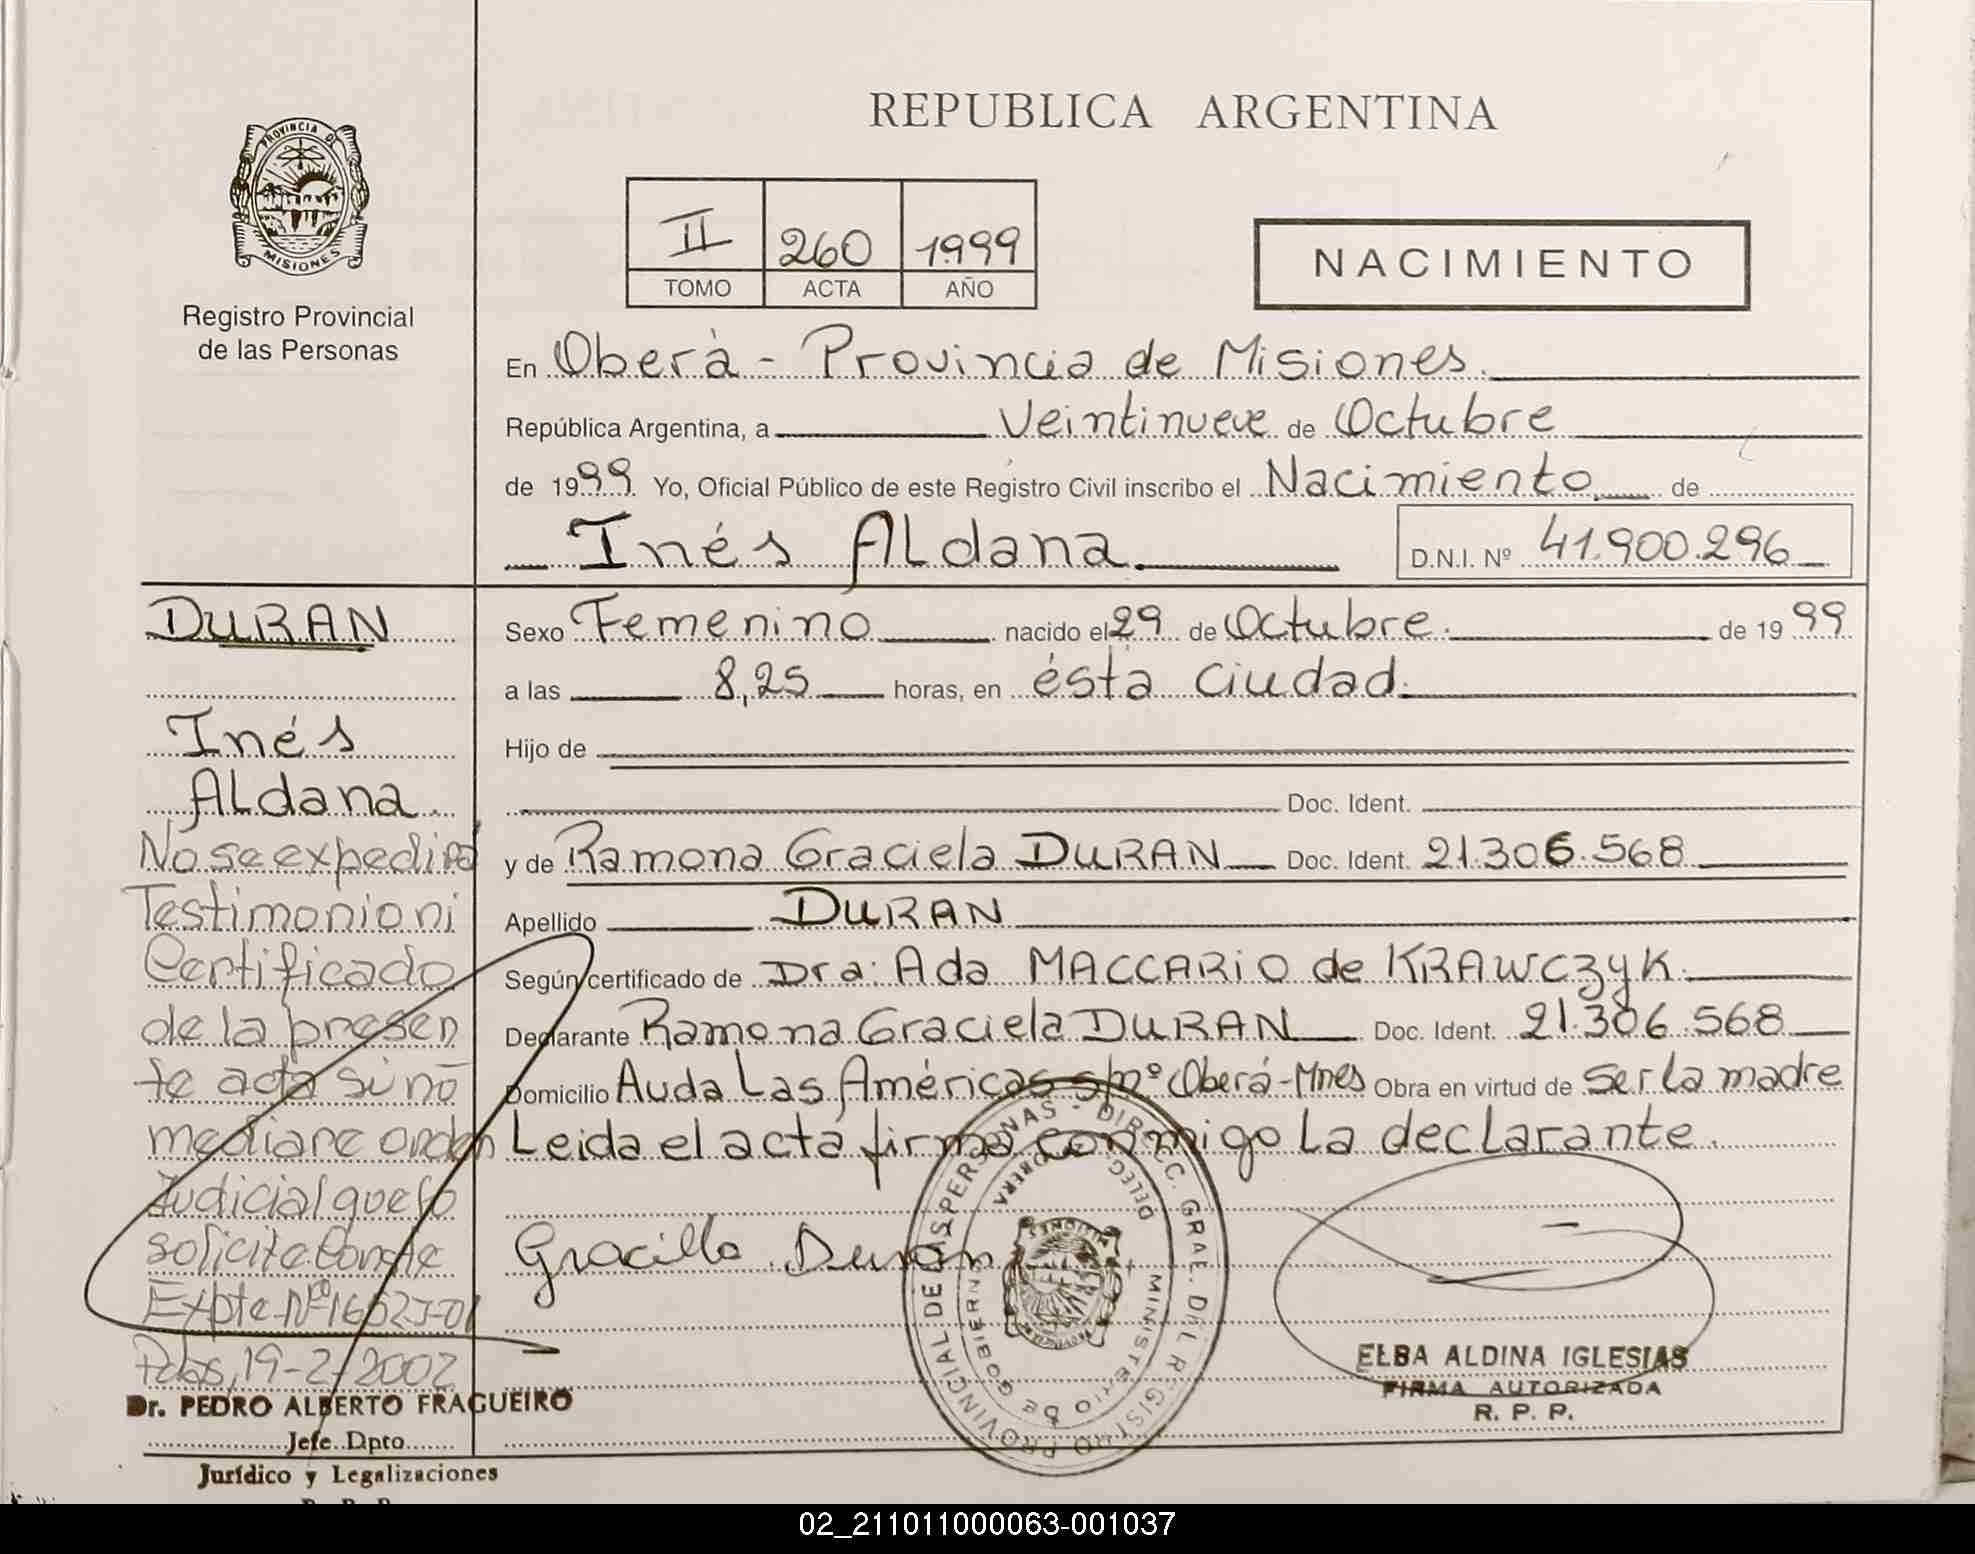 PROVINCIA DE
MISIONES
Registro Provincial
de las Personas
REPUBLICA ARGENTINA
II 260 1999
TOMO ACTA AÑO
NACIMIENTO
En Oberà - Provincia de Misiones.
República Argentina, a Veintinueve de Octubre
de 1999. Yo, Oficial Público de este Registro Civil inscribo el Nacimiento de
Inés Aldana. D.N.I. Nº 41.900.296
DURAN
Inés
Aldana.
No se expedirá
Testimonio ni
Certificado
de la presen
te acta si no
mediare orden
Judicial que lo
solicite Conste
Expte Nº
Pdas, 19-2-2002
Dr. PEDRO ALBERTO FRAGUEIRO
Jefe Dpto.
Jurídico y Legalizaciones
Sexo Femenino nacido el 29 de Octubre. de 1999
a las 8,25 horas, en ésta Ciudad.
Hijo de
Doc. Ident.
y de Ramona Graciela DURAN Doc. Ident. 21.306.568
Apellido DURAN
Según certificado de Dra: Ada MACCARIO de KRAWCZYK.
Declarante Ramona Graciela DURAN Doc. Ident. 21.306.568
Domicilio Auda Las Américas s/nº Oberá-Mnes Obra en virtud de Ser la madre
Leida el acta firma conmigo la declarante.
Duran
PROVINCIAL DE LAS PERSONAS - DIRECC. GRAL. DEL REGISTRO
MINISTERIO DE GOBIERNO
DELEG. OBERA
ELBA ALDINA IGLESIAS
FIRMA AUTORIZADA
R. P. P.
02_211011000063-001037